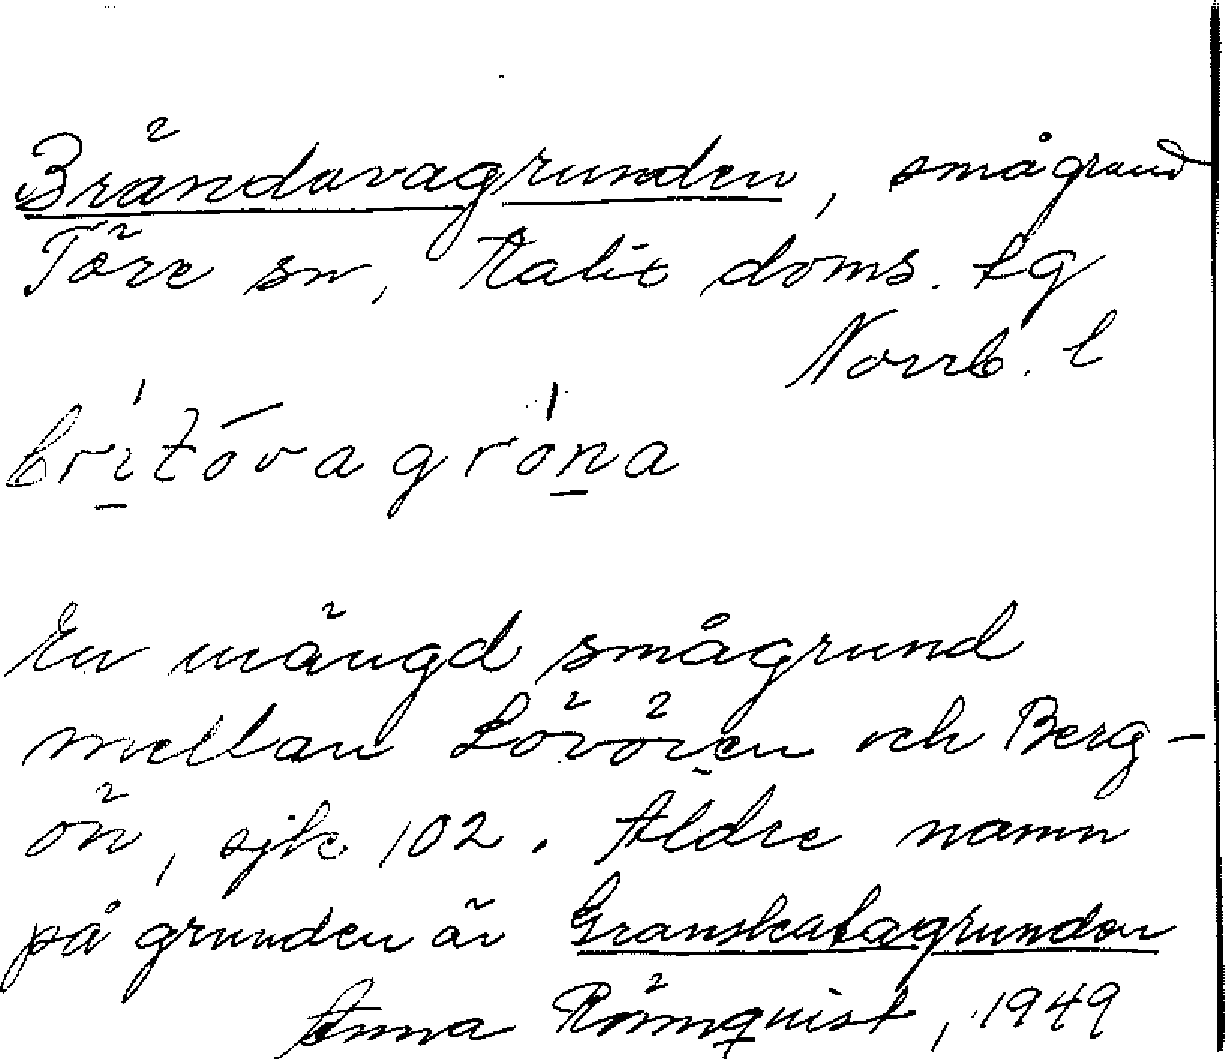 Brändavagrunden, smågrund
Töre sn, Kalix doms. lg
Norrb. l
En mängd smågrund
mellan Lövören och Berg-
ön, sjk 102. Äldre namn
på grunden är Granskatagrunden
Anna Rönnquist, 1949